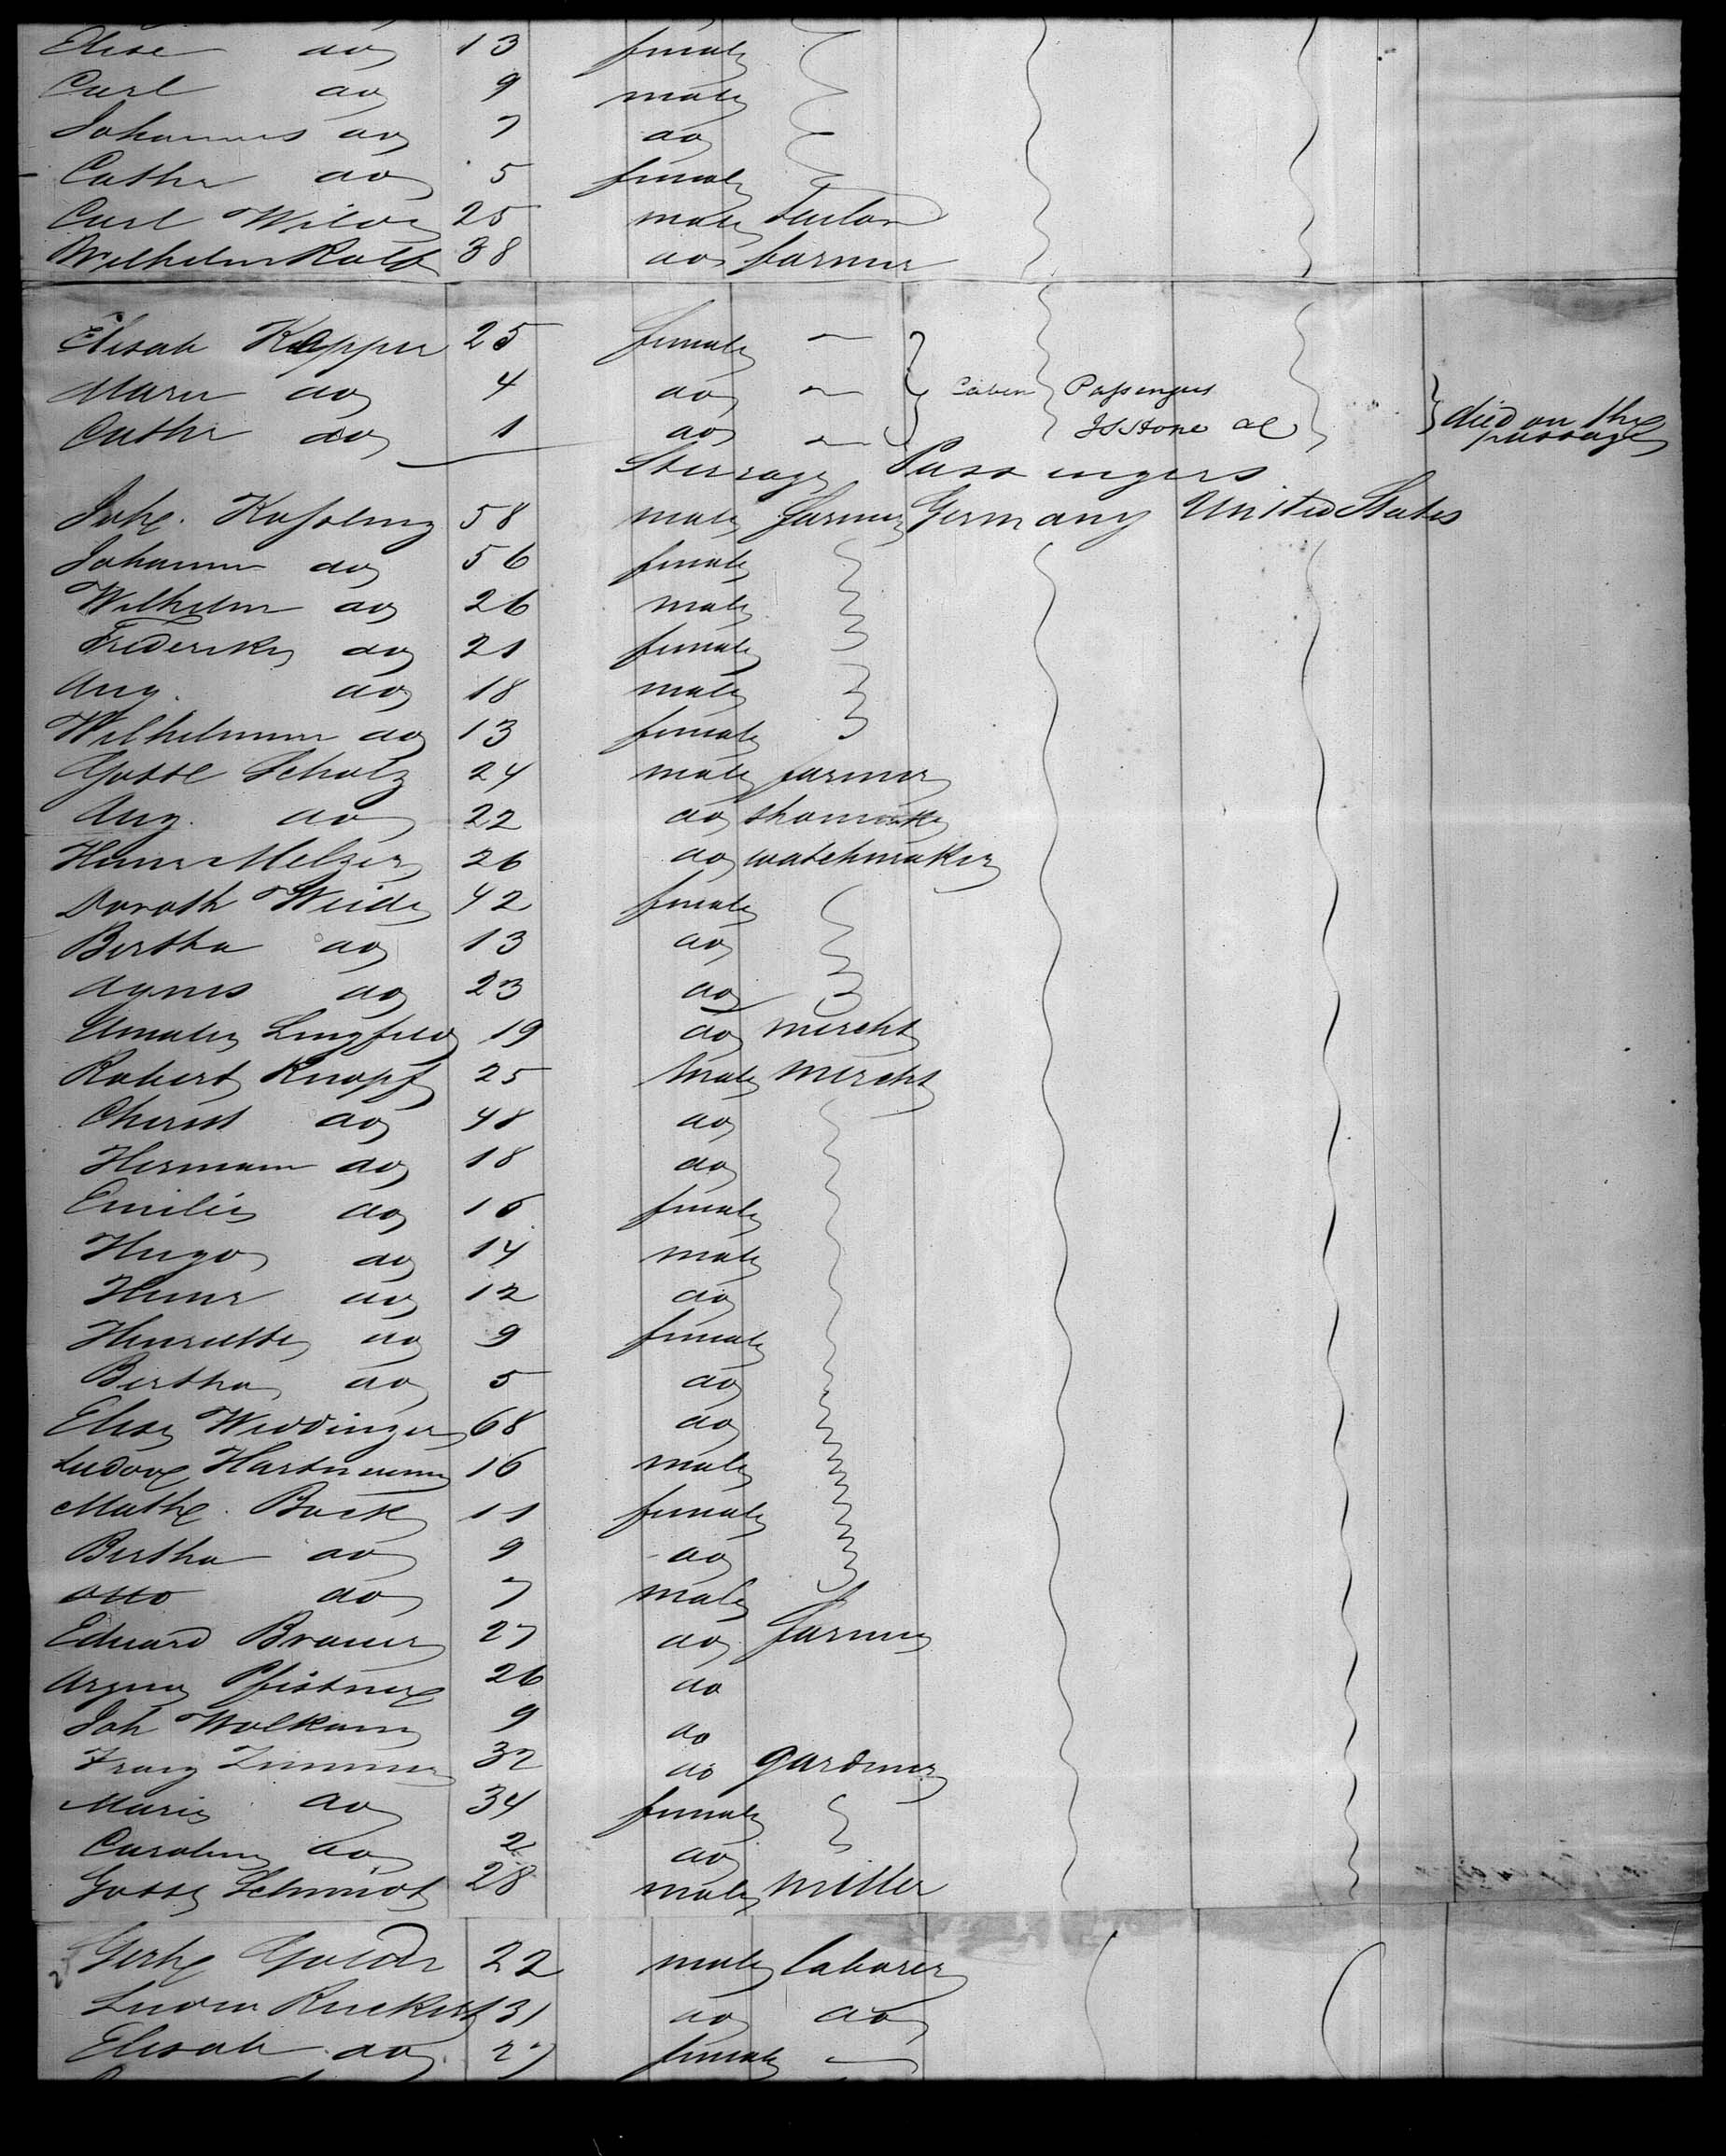 Elise do 13 female
Carl do 9 male
Johannes do 7 do
Cathr do 5 female
Carl Wilde 25 male Tailor
Wilhelm Rolf 38 do farmer
Elisab Kapper 25 female
Marie do 4 do Cabin Passengers
Cathr do 1 do died on the passage
Steerage Passengers
58 male farmer Germany United States
Johanne do 56 female
Wilhelm do 26 male
Frederike do 21 female
Aug. do 18 male
Wilhelmine do 13 female
Schulz 24 male farmer
Aug. do 22 do shomaker
Heinr Melzer 26 do watchmaker
Doroth Weide 42 female
Bertha do 13 do
Agnes do 23 do
Amalie Lingfeld 19 do mercht
Robert Knopf 25 male mercht
Christ do 48 do
Hermann do 18 do
Emilie do 16 female
Hugo do 14 male
Heinr do 12 do
Henriette do 9 female
Bertha do 5 do
Elise Weddinger 68 do
Hartmann 16 male
Bock 11 female
Bertha do 9 do
Otto do 7 male
Eduard Brauer 27 do farmer
26 do
Joh Wolkam 9 do
Franz Zimmer 32 do gardener
Marie do 34 female
Caroline do 2 do
Schmidt 28 male miller
22 male laborer
31 do do
Elisab do 27 female